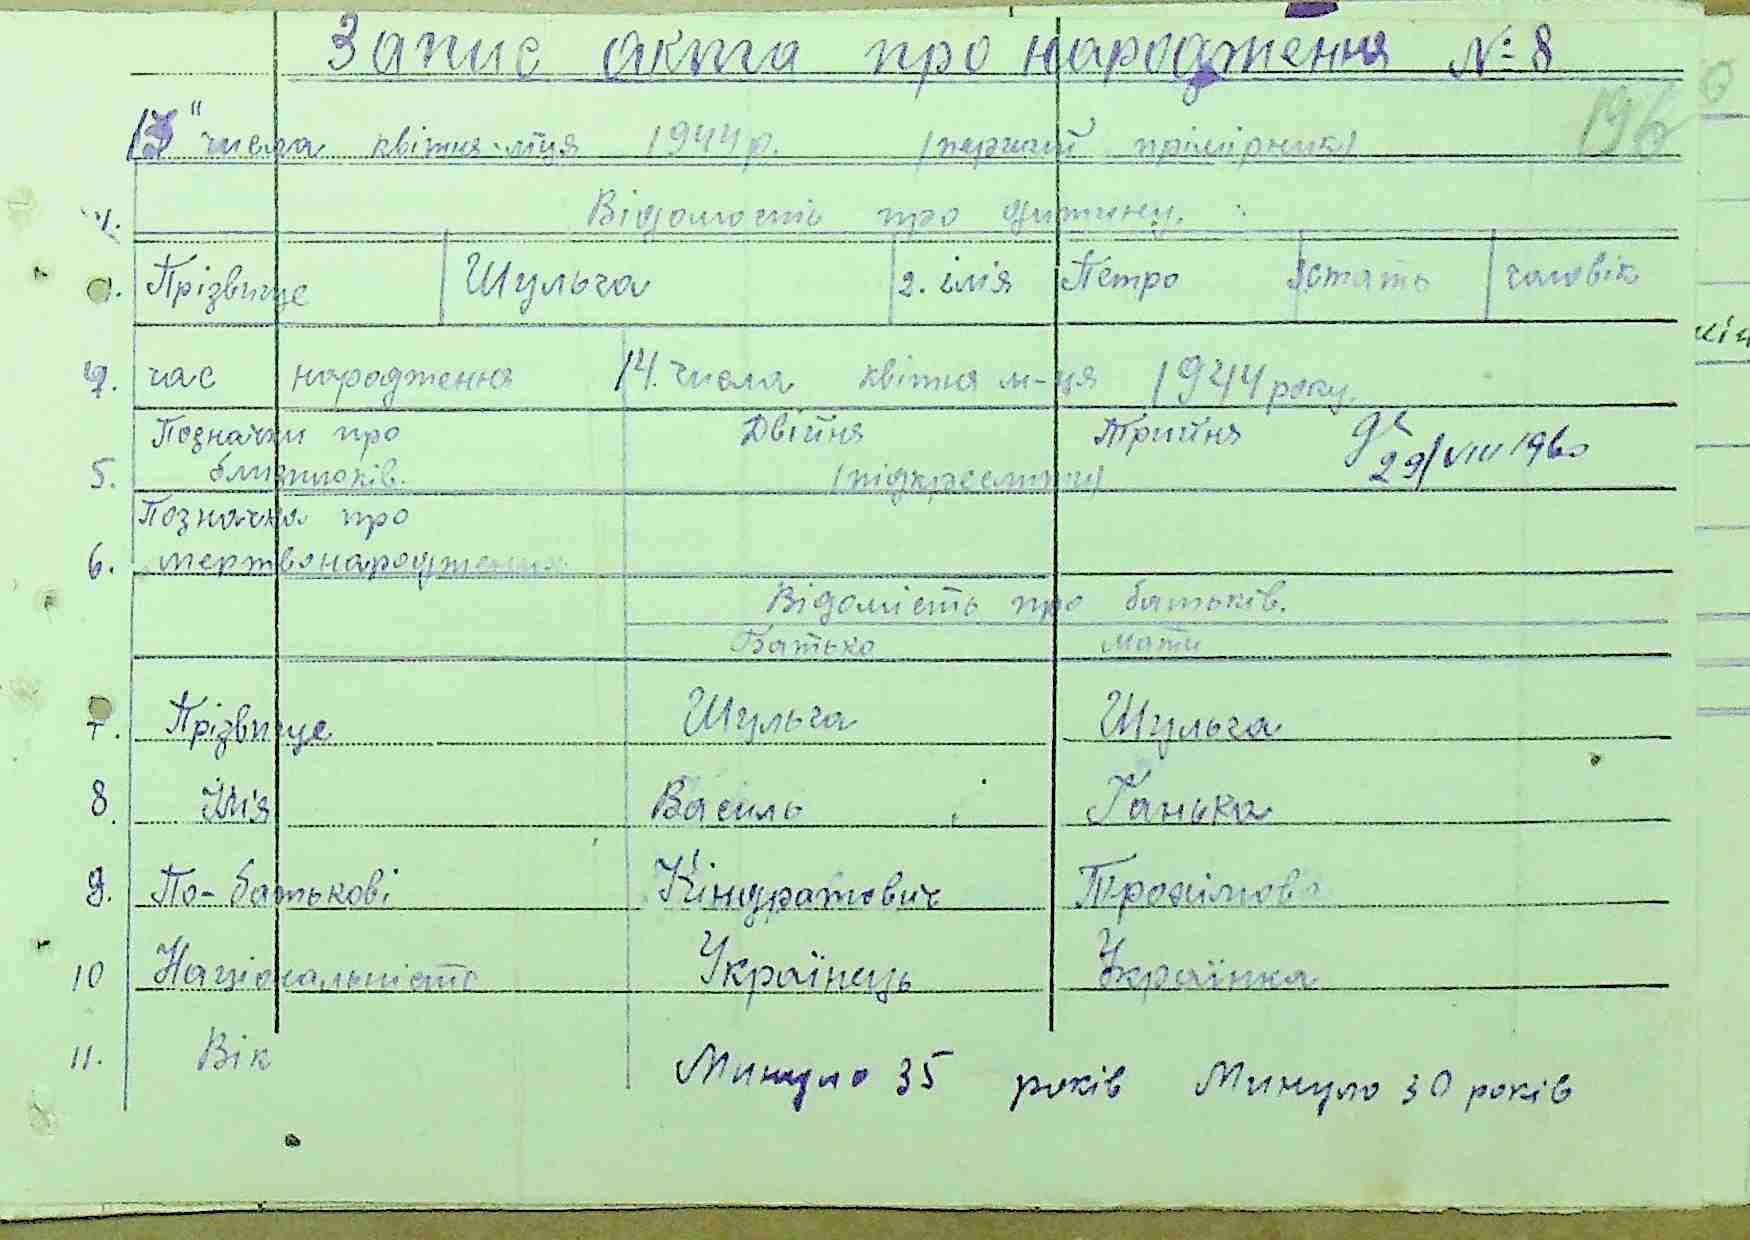 Запис акта про народження № 8
" числа квітня м-ця 1944 р. /перший прімірник/
196
Відомость про дитину.
1. Прізвище Шульга 2. імія Петро 3 стать чоловік
4. час народження 14. числа квітня м-ця 1944 року.
Позначки про Двійня Трийня
5. близнюків. /підкреслити/ 29/VIII 1960
Позначка про
6. мертвонародження
Відомість про батьків.
Батько мати
7. Прізвище Шульга Шульга
8. Імія Василь Ганька
9. По-батькові Кіндратович Трохимова
10 Національність Українець Українка
11. Вік Минуло 35 років Минуло 30 років